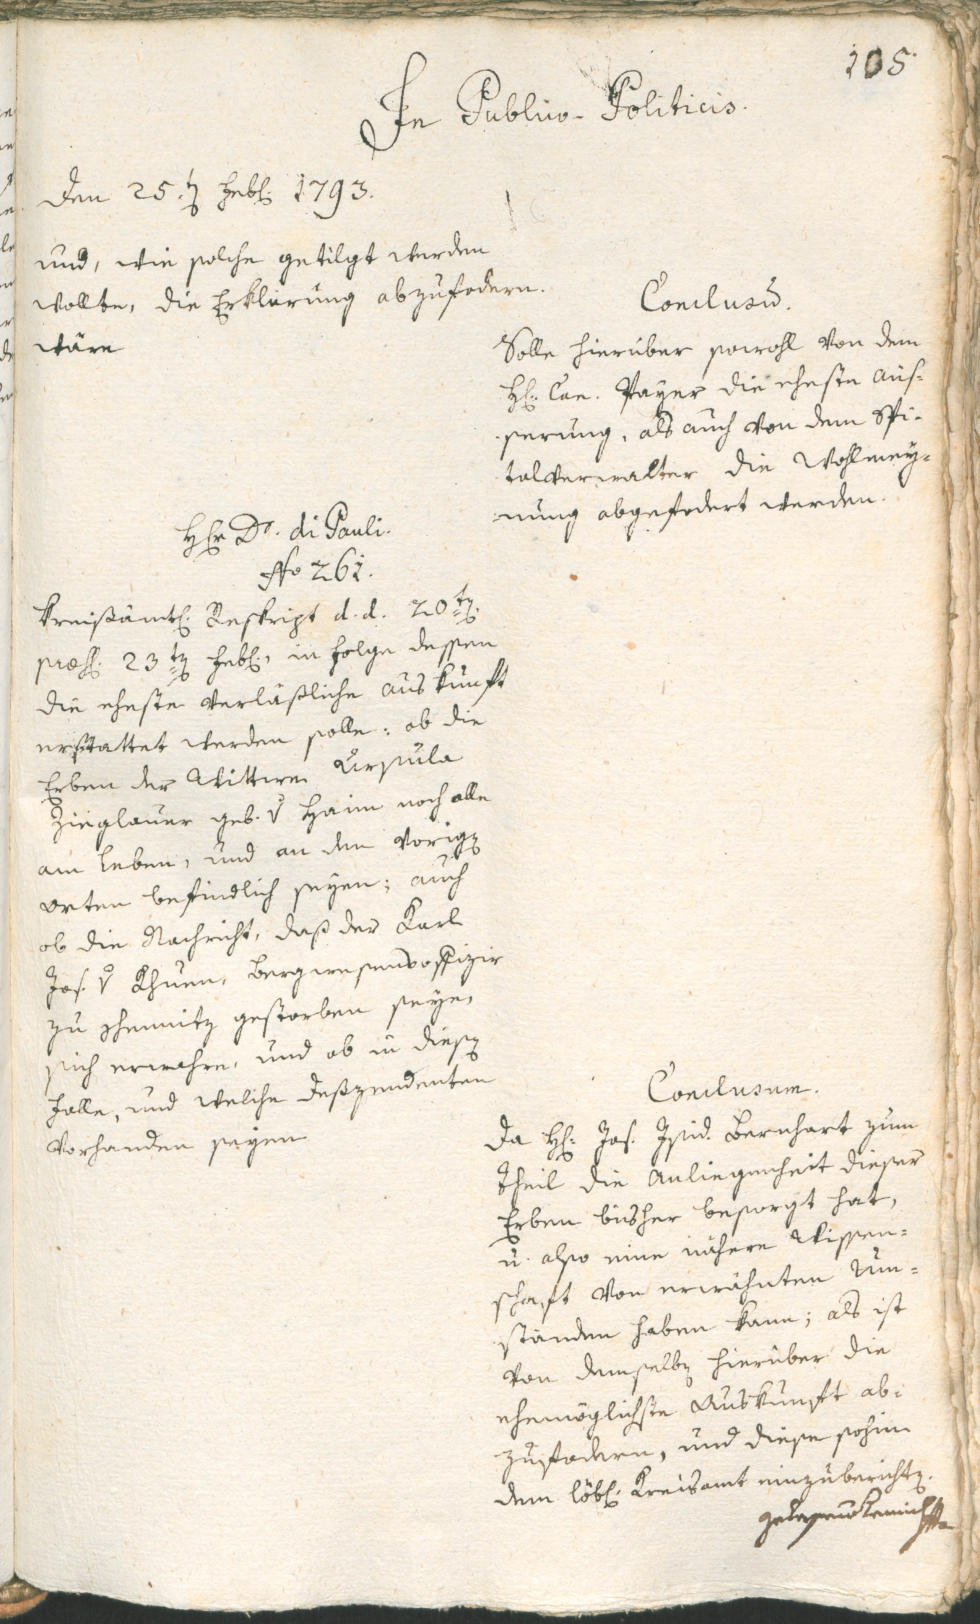 105.
In Publico-Politicis.
Den 25.ten Hebl. 1793.
und, wie solche getilgt werden
wollte, die Erklärung abzufodern.
wäre
Conclusū.
Solle hierüber sowohl von dem
H. Can. Payer die eheste Aüs-
serung, als auch von dem Spi-
talverwalter die Wohlmey-
nung abgefodert werden.
Hr Dr. di Pauli.
No 261.
Kreisämtl. Reskript d. d. 20ten
præs. 23ten Hebl., in Folge dessen
die eheste verläßliche Auskunft
erstattet werden solle: ob die
Erben der Wittwe Ursula
Zieglauer geb. v Haim noch alle
am Leben, und an den vorigen
Orten befindlich seyen; auch
ob die Nachricht, daß der Karl
Jos. v Khuen, Bergwesensoffizir
zu Schemnitz gestorben seye,
sich erwahre, und ob in diesen
Falle, und welche Deszendenten
vorhanden seyen
Conclusum.
Da H. Jos. Isid. Bernhart zum
Theil die Anliegenheit dieser
Erben bisher besorgt hat,
u. also eine nähere Wissen-
schaft von erwähnten Um-
ständen haben kann; als ist
von demselben hierüber die
ehemöglichste Auskunft ab-
zufodern, und diese sohin
dem löbl. Kreisamt einzuberichten.